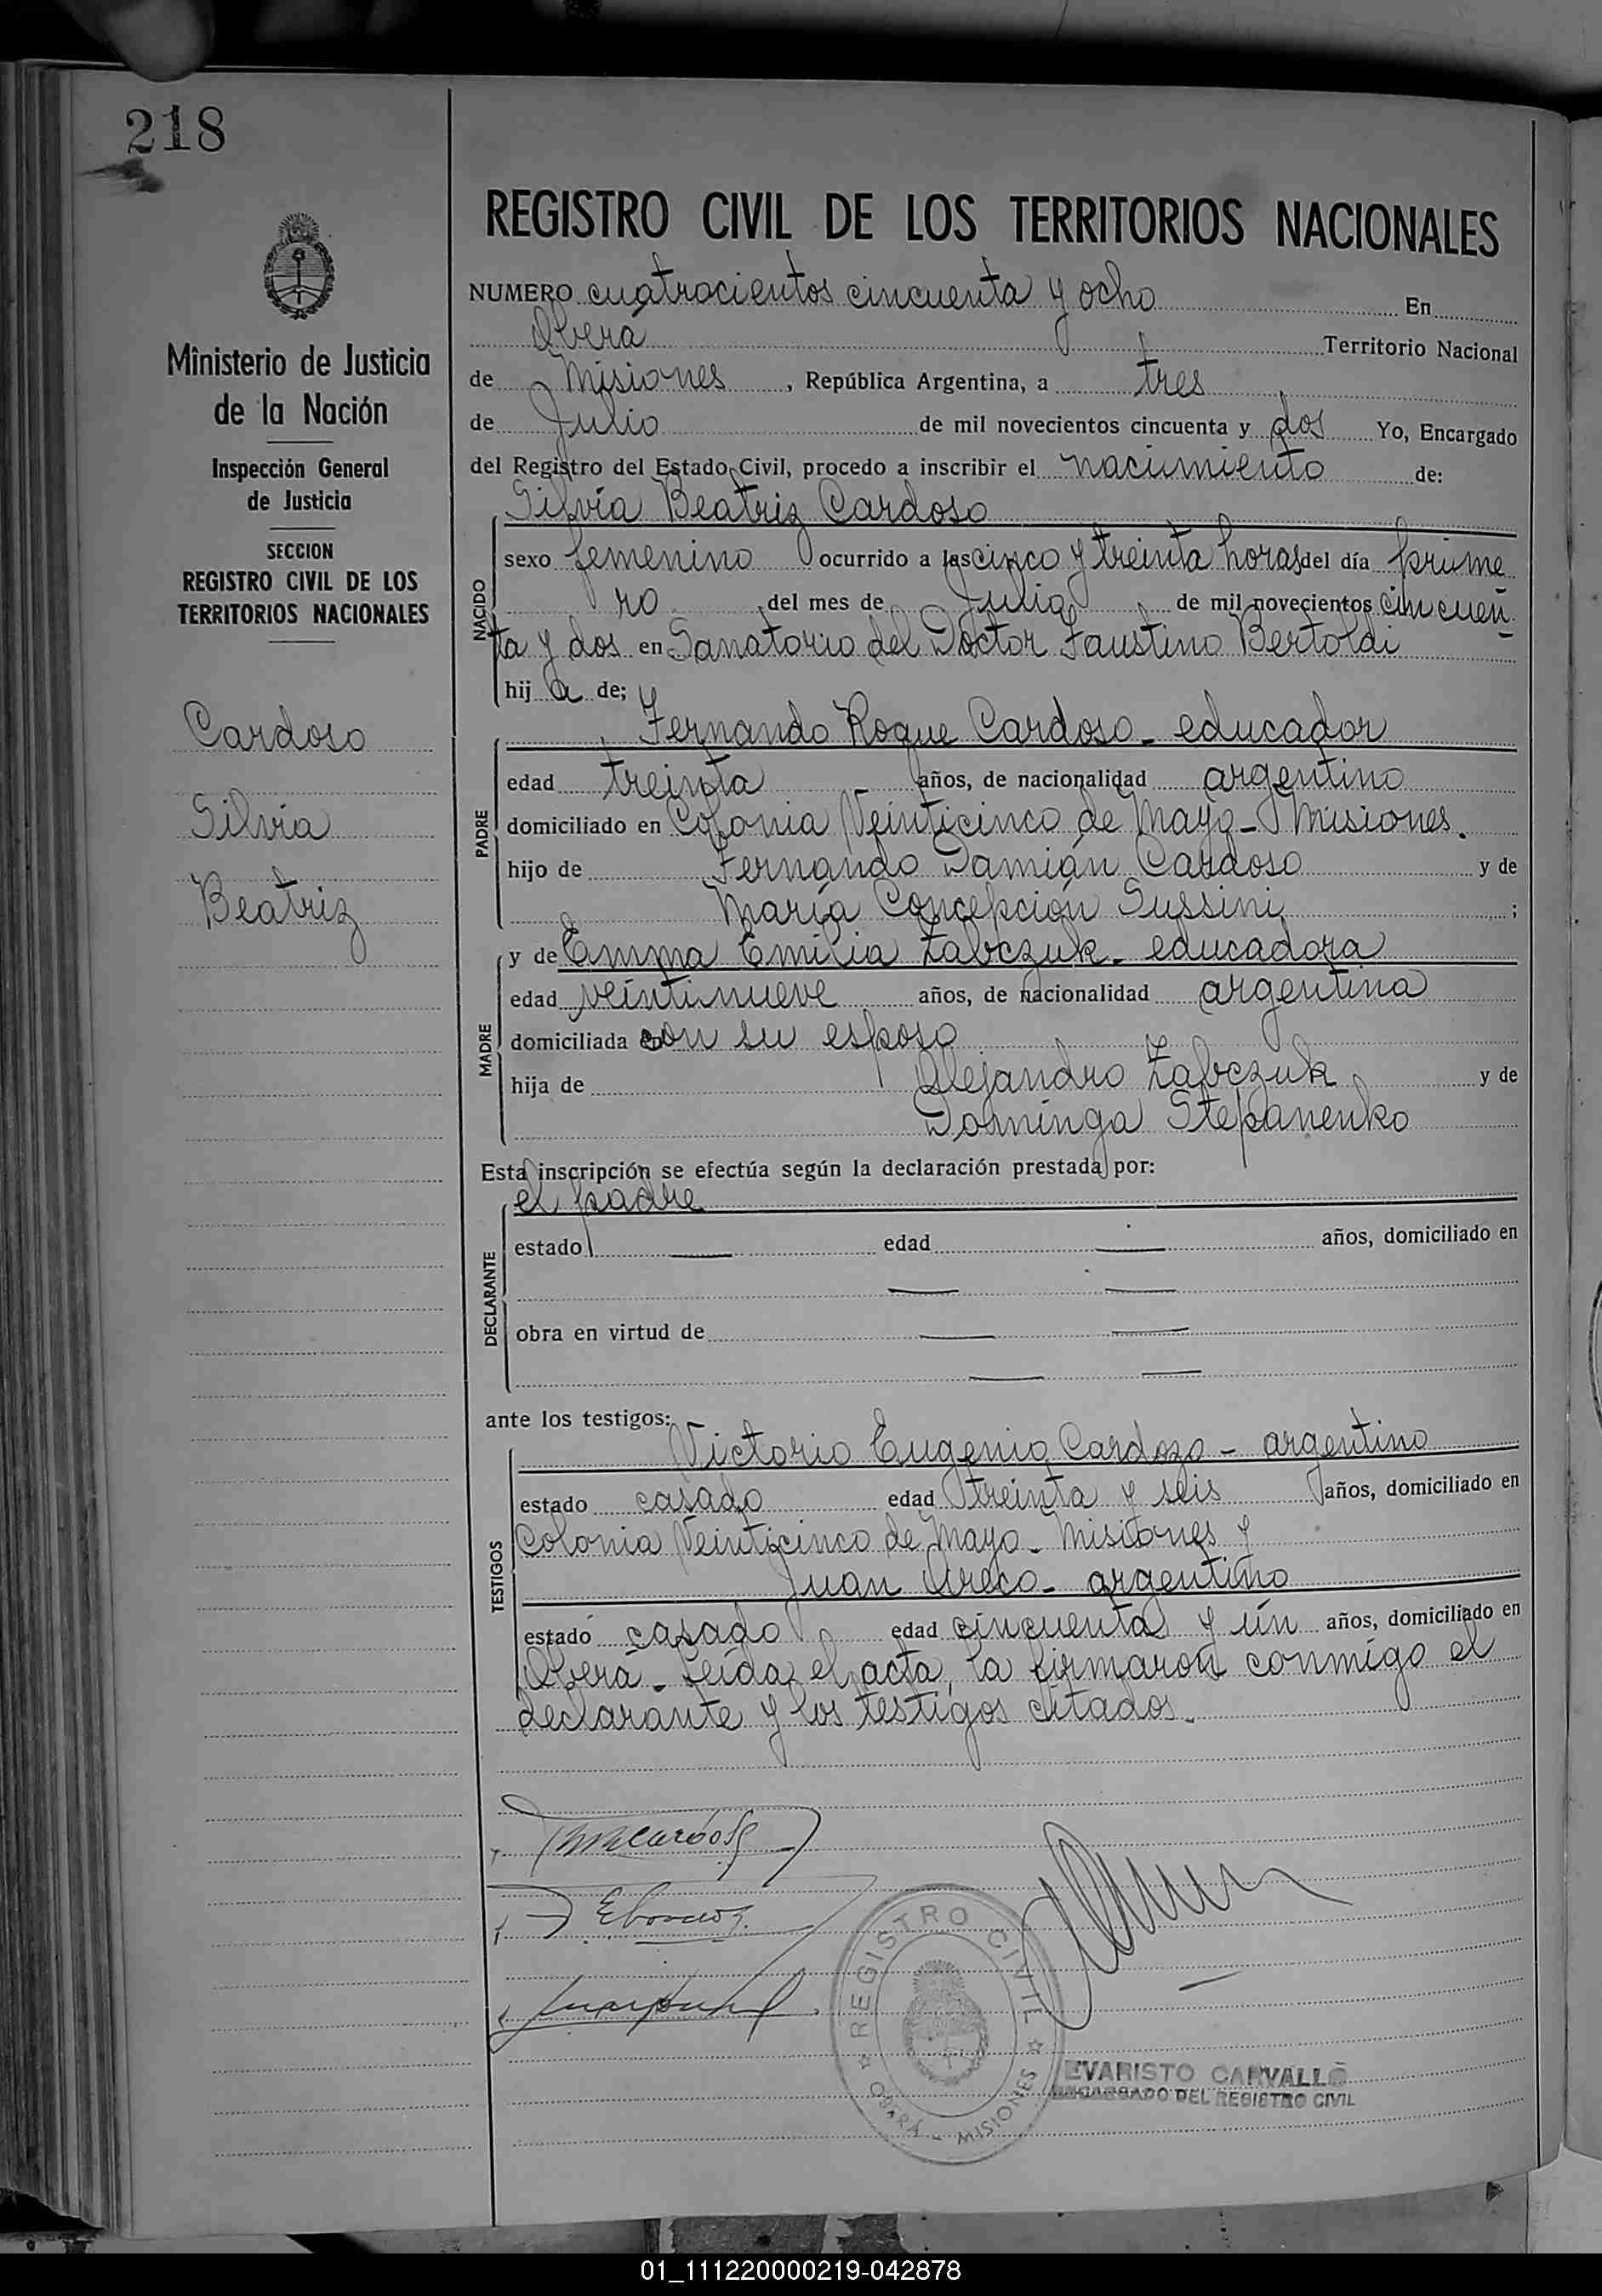 218
Ministerio de Justicia
de la Nación
Inspección General
de Justicia
SECCION
REGISTRO CIVIL DE LOS
TERRITORIOS NACIONALES
Cardoso
Silvia
Beatriz
REGISTRO CIVIL DE LOS TERRITORIOS NACIONALES
NUMERO cuatrocientos cincuenta y ocho En
Oberá Territorio Nacional
de Misiones, República Argentina, a tres
de Julio de mil novecientos cincuenta y dos Yo, Encargado
del Registro del Estado Civil, procedo a inscribir el nacimiento de:
Silvia Beatriz Cardoso
NACIDO
sexo femenino ocurrido a las cinco y treinta horas del día prime
ro del mes de Julio de mil novecientos cincuen-
ta y dos en Sanatorio del Doctor Faustino Bertoldi
hij a de;
PADRE
Fernando Roque Cardoso - educador
edad treinta años, de nacionalidad argentino
domiciliado en Colonia Veinticinco de Mayo - Misiones.
hijo de Fernando Damián Cardoso y de
María Concepción Sussini ;
MADRE
y de Emma Emilia Zabczuk - educadora
edad veintinueve años, de nacionalidad argentina
domiciliada con su esposo
hija de Alejandro Zabczuk y de
Dominga Stepanenko
Esta inscripción se efectúa según la declaración prestada por:
el padre
DECLARANTE
estado — edad — años, domiciliado en
— —
obra en virtud de — —
— —
ante los testigos:
TESTIGOS
Victorio Eugenio Cardozo - argentino
estado casado edad treinta y seis años, domiciliado en
Colonia Veinticinco de Mayo - Misiones y
Juan - argentino
estado casado edad cincuenta y un años, domiciliado en
Oberá. Leída el acta, la firmaron conmigo el
declarante y los testigos citados.
REGISTRO CIVIL
OBERÁ - MISIONES
EVARISTO CARVALLO
ENCARGADO DEL REGISTRO CIVIL
01_111220000219-042878